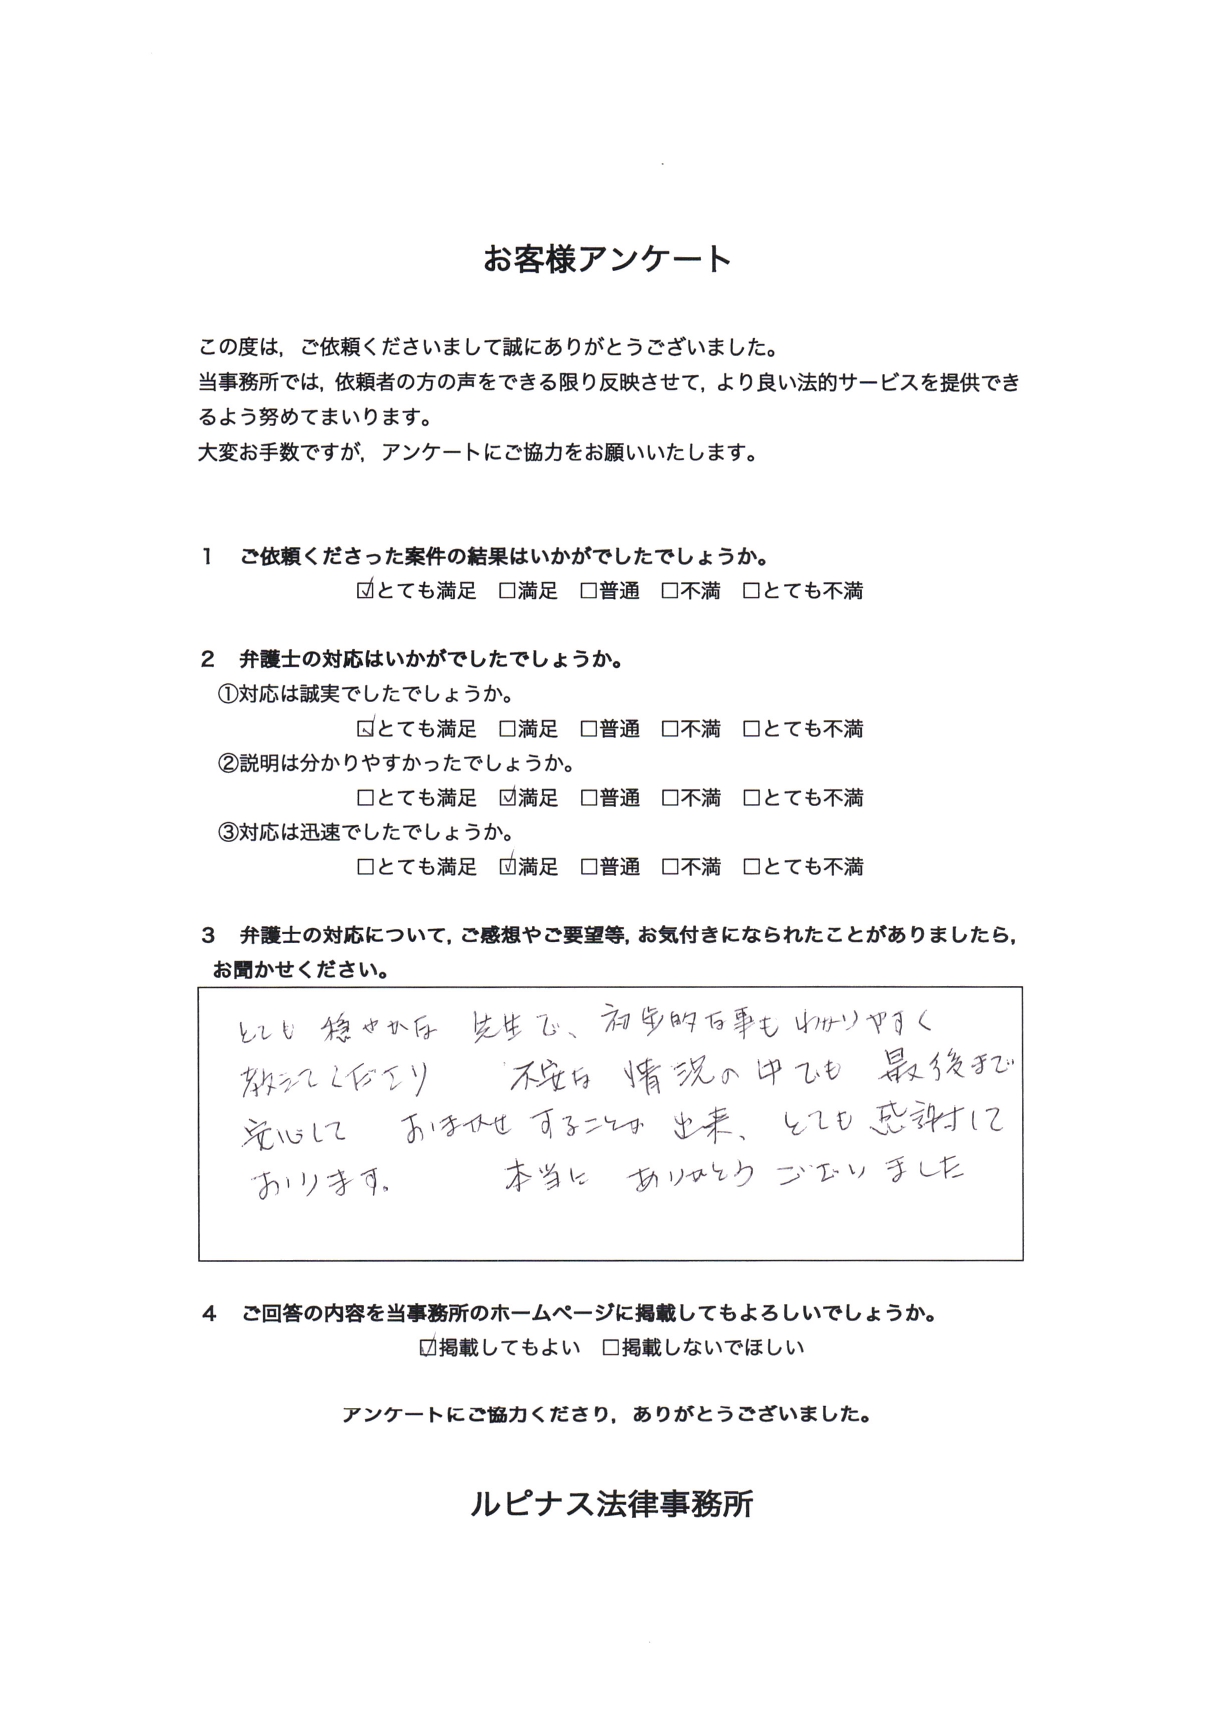 お客様アンケート
この度は，ご依頼くださいまして誠にありがとうございました。
当事務所では，依頼者の方の声をできる限り反映させて，より良い法的サービスを提供でき
るよう努めてまいります。
大変お手数ですが，アンケートにご協力をお願いいたします。
１　ご依頼くださった案件の結果はいかがでしたでしょうか。
☑とても満足　□満足　□普通　□不満　□とても不満
２　弁護士の対応はいかがでしたでしょうか。
①対応は誠実でしたでしょうか。
☑とても満足　□満足　□普通　□不満　□とても不満
②説明は分かりやすかったでしょうか。
□とても満足　☑満足　□普通　□不満　□とても不満
③対応は迅速でしたでしょうか。
□とても満足　☑満足　□普通　□不満　□とても不満
３　弁護士の対応について，ご感想やご要望等，お気付きになられたことがありましたら，
お聞かせください。
とても 穏やかな 先生で、初歩的な事も わかりやすく
教えてくださり　不安な 情況の中でも 最後まで
安心して おまかせ することが 出来、とても 感謝して
おります。　本当に ありがとう ございました
４　ご回答の内容を当事務所のホームページに掲載してもよろしいでしょうか。
☑掲載してもよい　□掲載しないでほしい
アンケートにご協力くださり，ありがとうございました。
ルピナス法律事務所